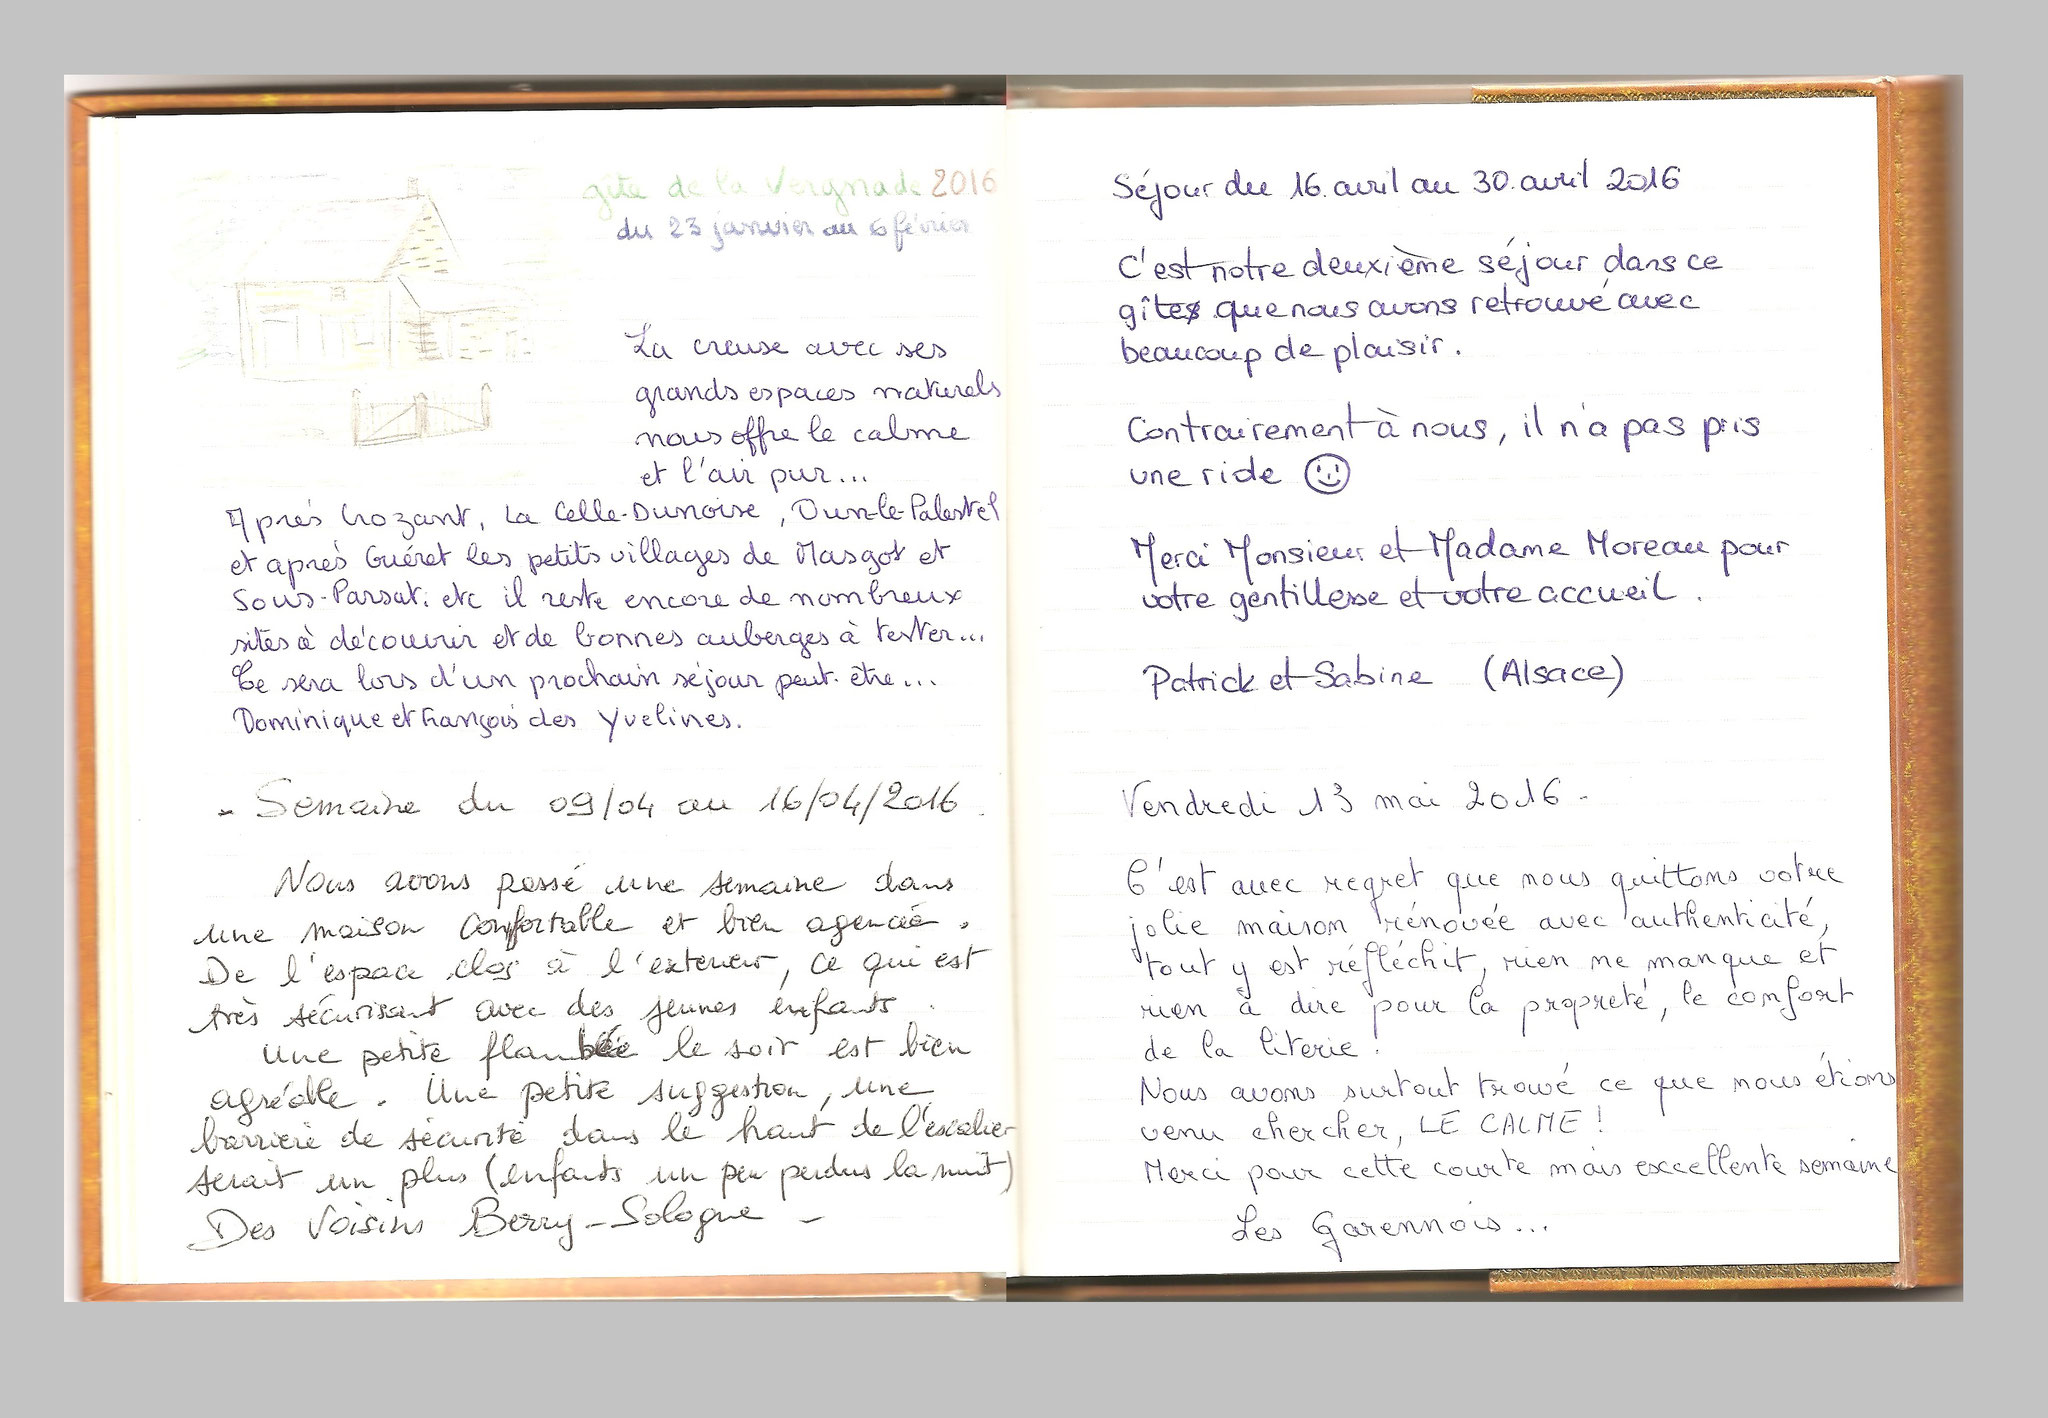 gîte de la Vergnade 2016
du 23 janvier au 6 février
La creuse avec ses
grands espaces naturels
nous offre le calme
et l'air pur...
Après Crozant, La Celle-Dunoise, Dun-le-Palestel
et après Guéret les petits villages de Masgot et
Sous-Parsat. etc il reste encore de nombreux
sites à découvrir et de bonnes auberges à tester...
Ce sera lors d'un prochain séjour peut-être...
Dominique et François des Yvelines.
- Semaine du 09/04 au 16/04/2016.
Nous avons passé une semaine dans
une maison confortable et bien agencée.
De l'espace clos à l'exterieur, ce qui est
très sécurisant avec des jeunes enfants.
Une petite flambée le soir est bien
agréable. Une petite suggestion, une
barrière de sécurité dans le haut de l'escalier
serait un plus (enfants un peu perdus la nuit)
Des Voisins Berry-Sologne -
Séjour du 16.avril au 30.avril 2016
C'est notre deuxième séjour dans ce
gîte que nous avons retrouvé avec
beaucoup de plaisir.
Contrairement à nous, il n'a pas pris
une ride ☺
Merci Monsieur et Madame Moreau pour
votre gentillesse et votre accueil.
Patrick et Sabine (Alsace)
Vendredi 13 mai 2016.
C'est avec regret que nous quittons votre
jolie maison rénovée avec authenticité,
tout y est réfléchit, rien ne manque et
rien à dire pour la propreté, le confort
de la literie.
Nous avons surtout trouvé ce que nous étions
venu chercher, LE CALME !
Merci pour cette courte mais excellente semaine
Les Garennois...